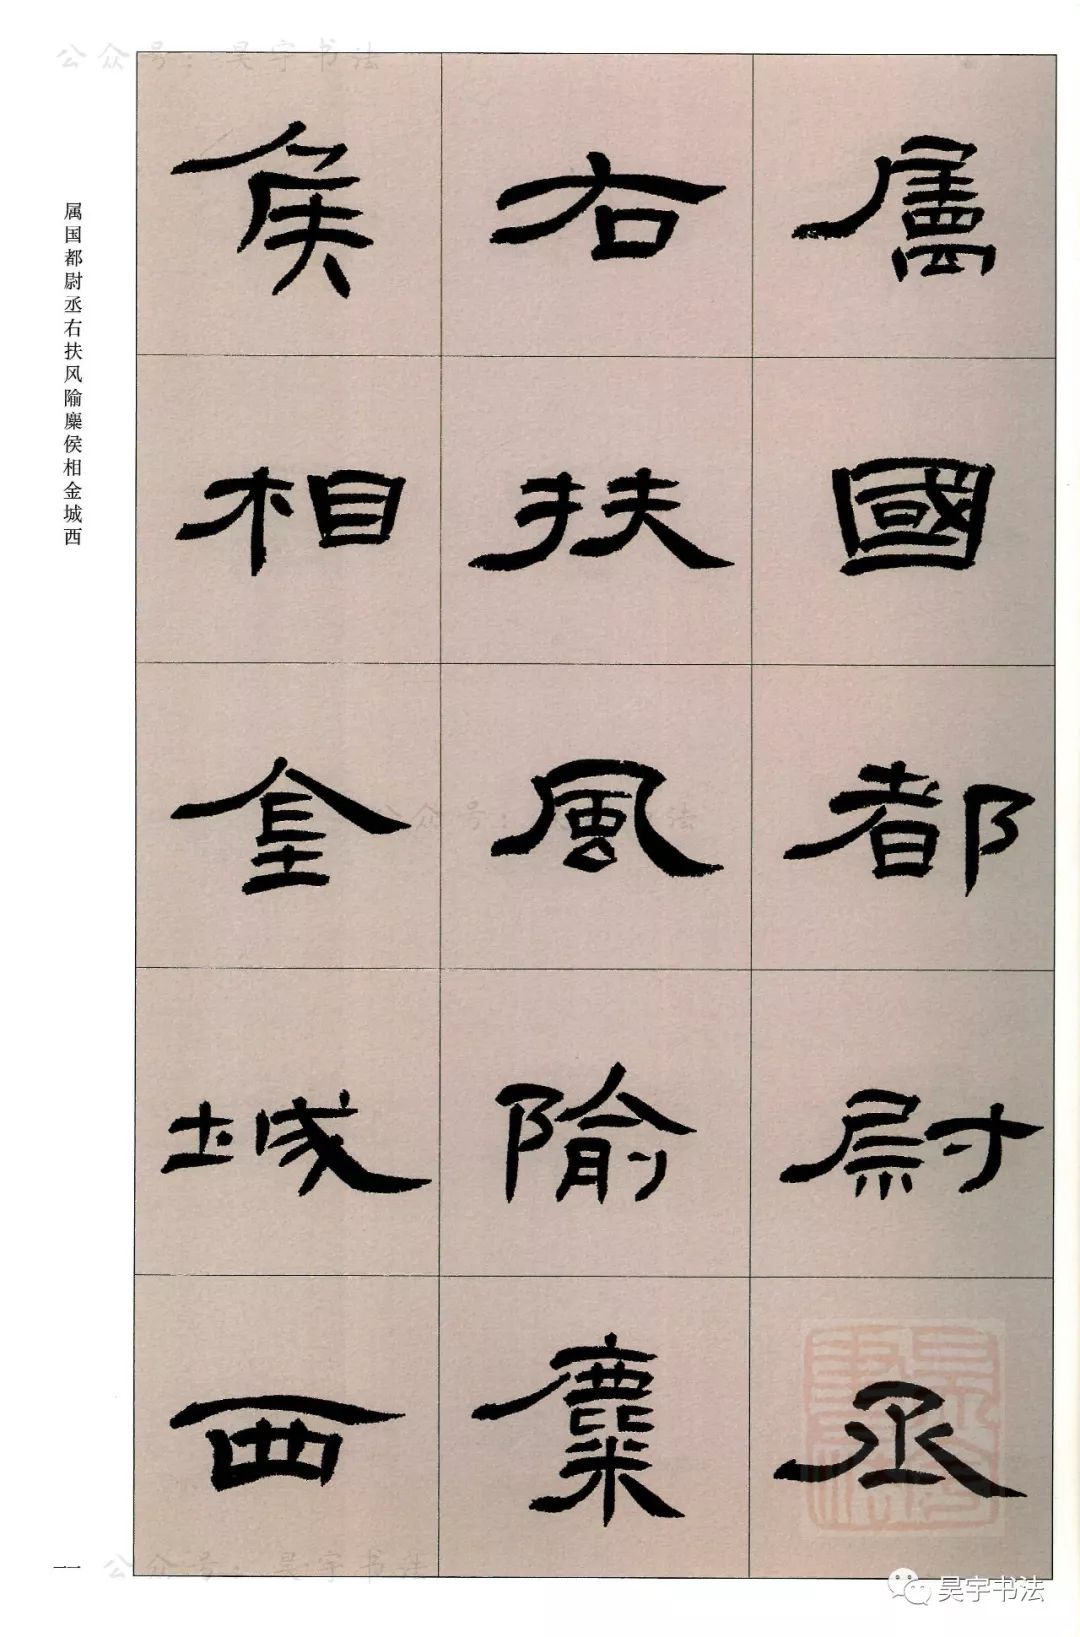 公众号：昊宇书法
屬國都尉丞
右扶風隃麋
侯相金城西
属国都尉丞右扶风隃麋侯相金城西
公众号：昊宇书法
一一
公众号：昊宇书法
昊宇书法